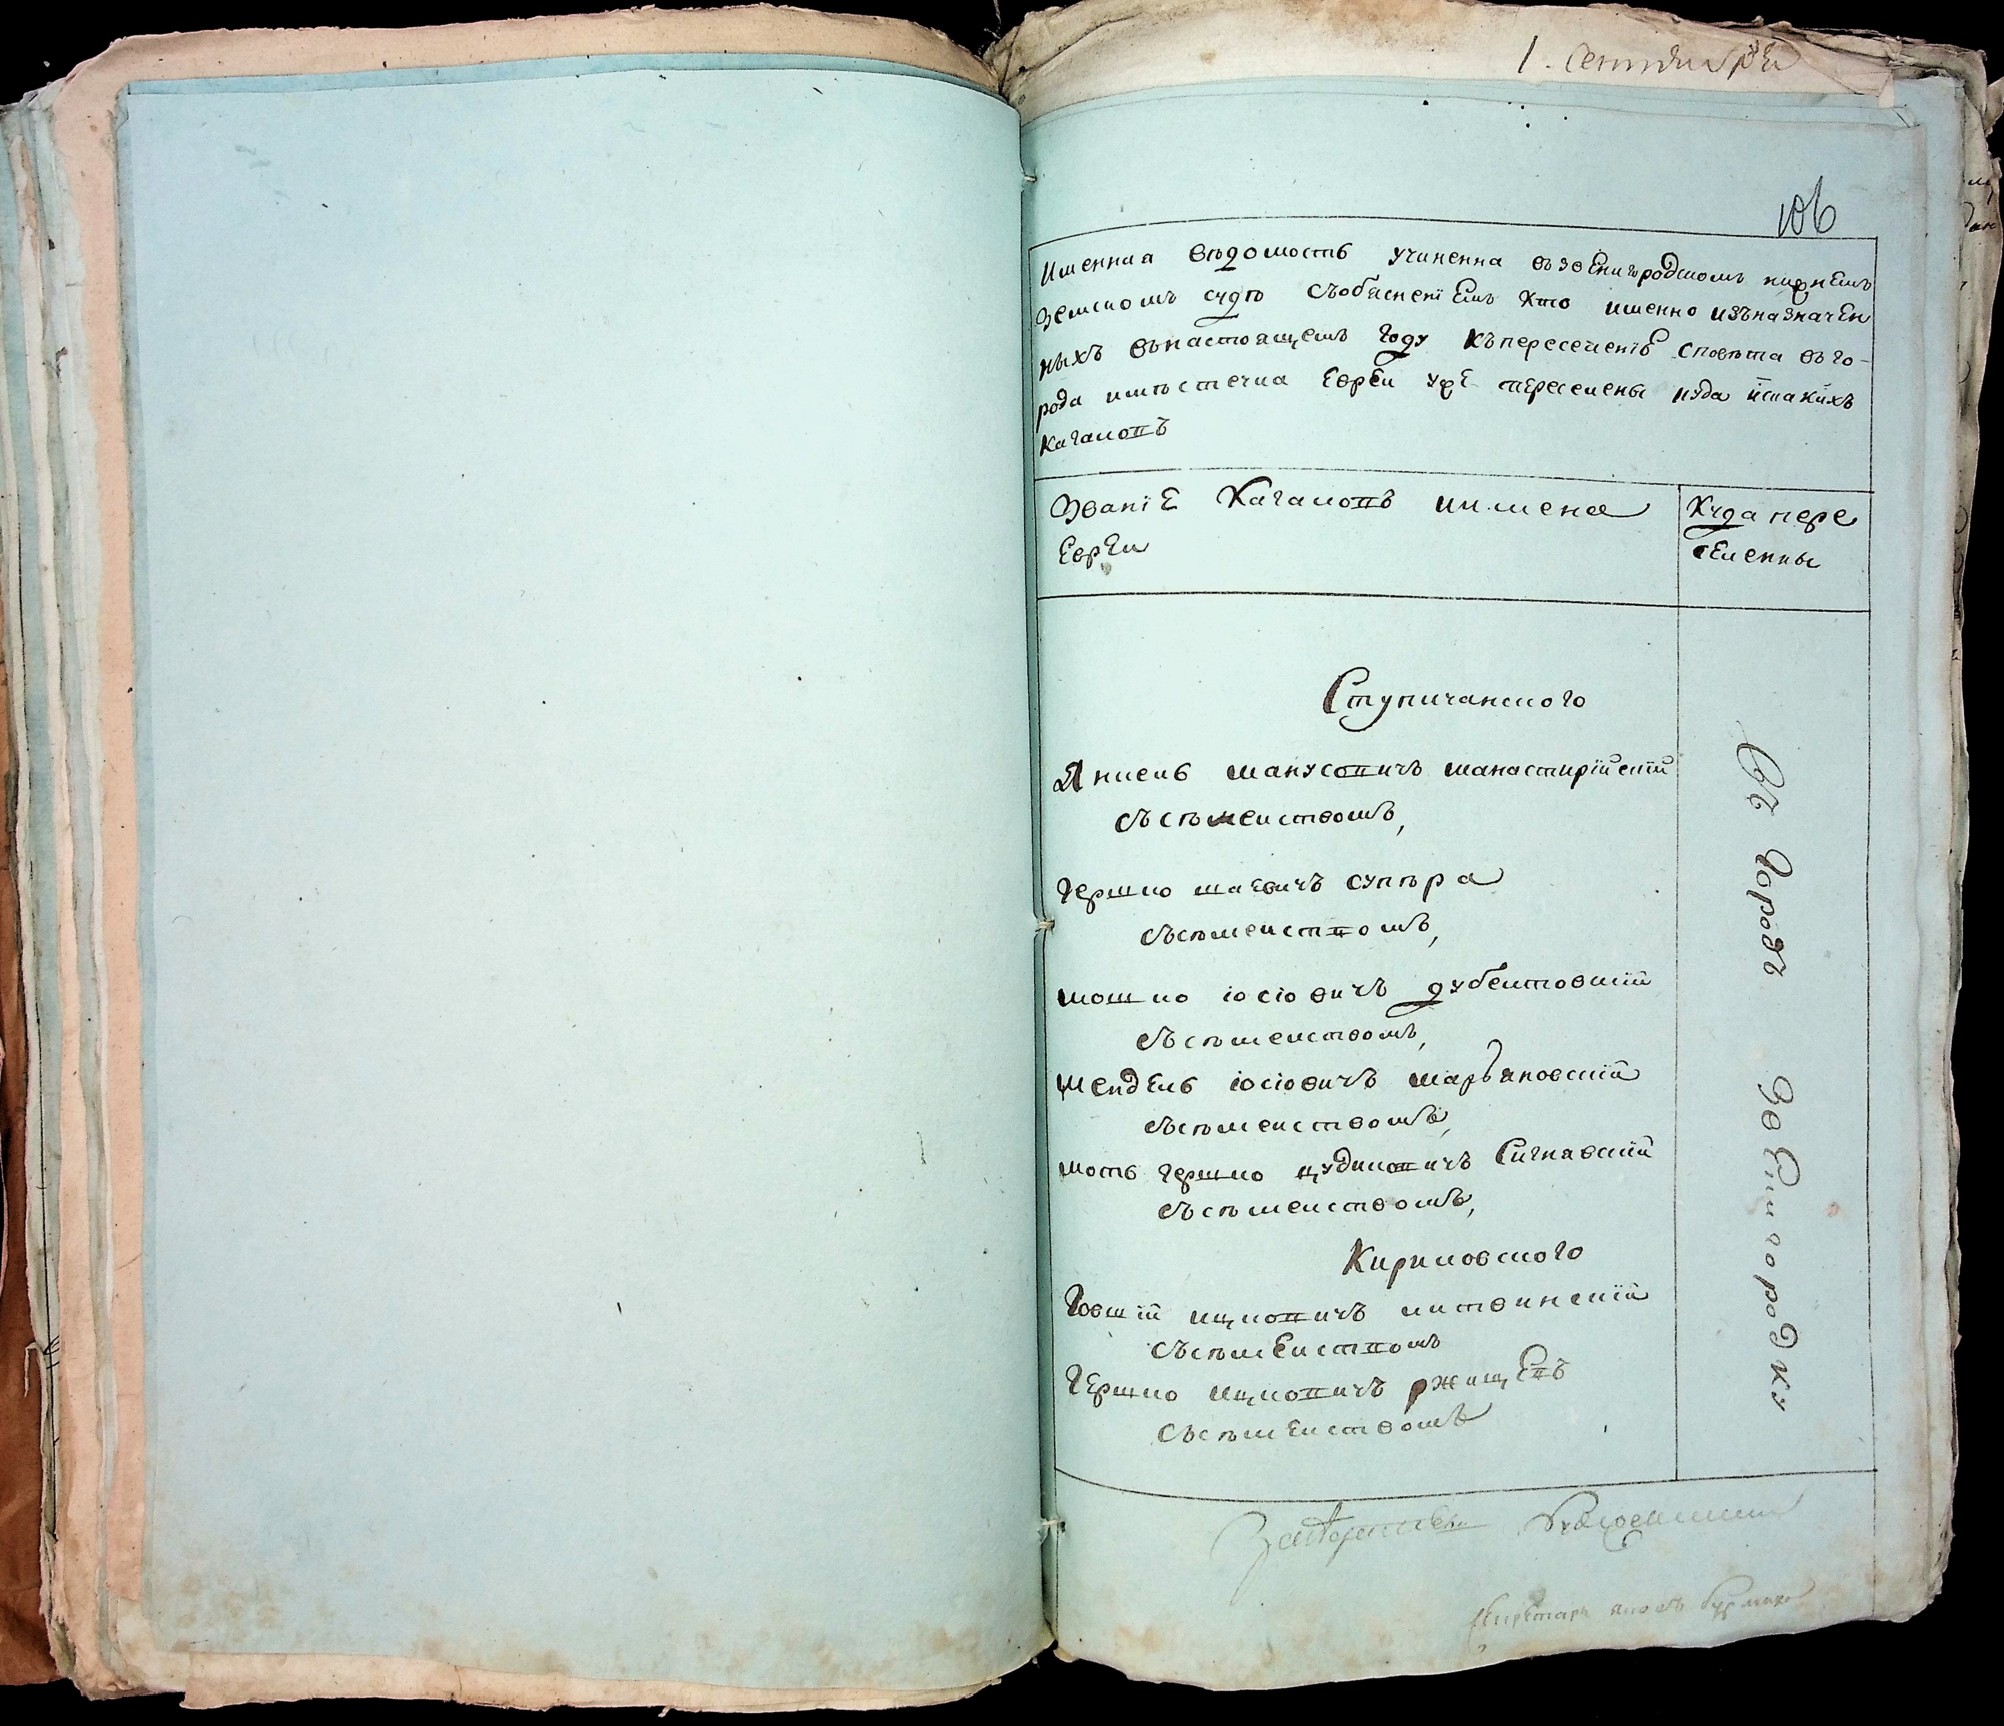 1. сентября
106
Именная вѣдомость учиненна въ звенигродскомъ нижнемъ
земскомъ судѣ съобясненіемъ кто именно изъназначен
ныхъ вънастоящемъ году къпереселеніе споветта въго-
рода иместечка евреи уже переселены куда искакихъ
кагаловъ
Званіе Кагаловъ иимена
евреи
Куда пере
селенны
Ступичанского
Янкель манусовичъ манастирійскій
съсѣмеиством,
Гершко шаевичъ супѣра
съсѣмеиством,
мошко іосіовичъ дубелтовскій
съсѣмеиством,
мендель іосіовичъ марьяновскій
съсѣмеиством,
мотъ гершко цудиковичъ Сигнавскій
съсѣмеиством,
Кириловского
Говшій ицковичъ литвинскій
съсѣмеистомъ
Гершко ицковичъ ржищевъ
съсѣмеиством
Въ Городъ Звенигородку